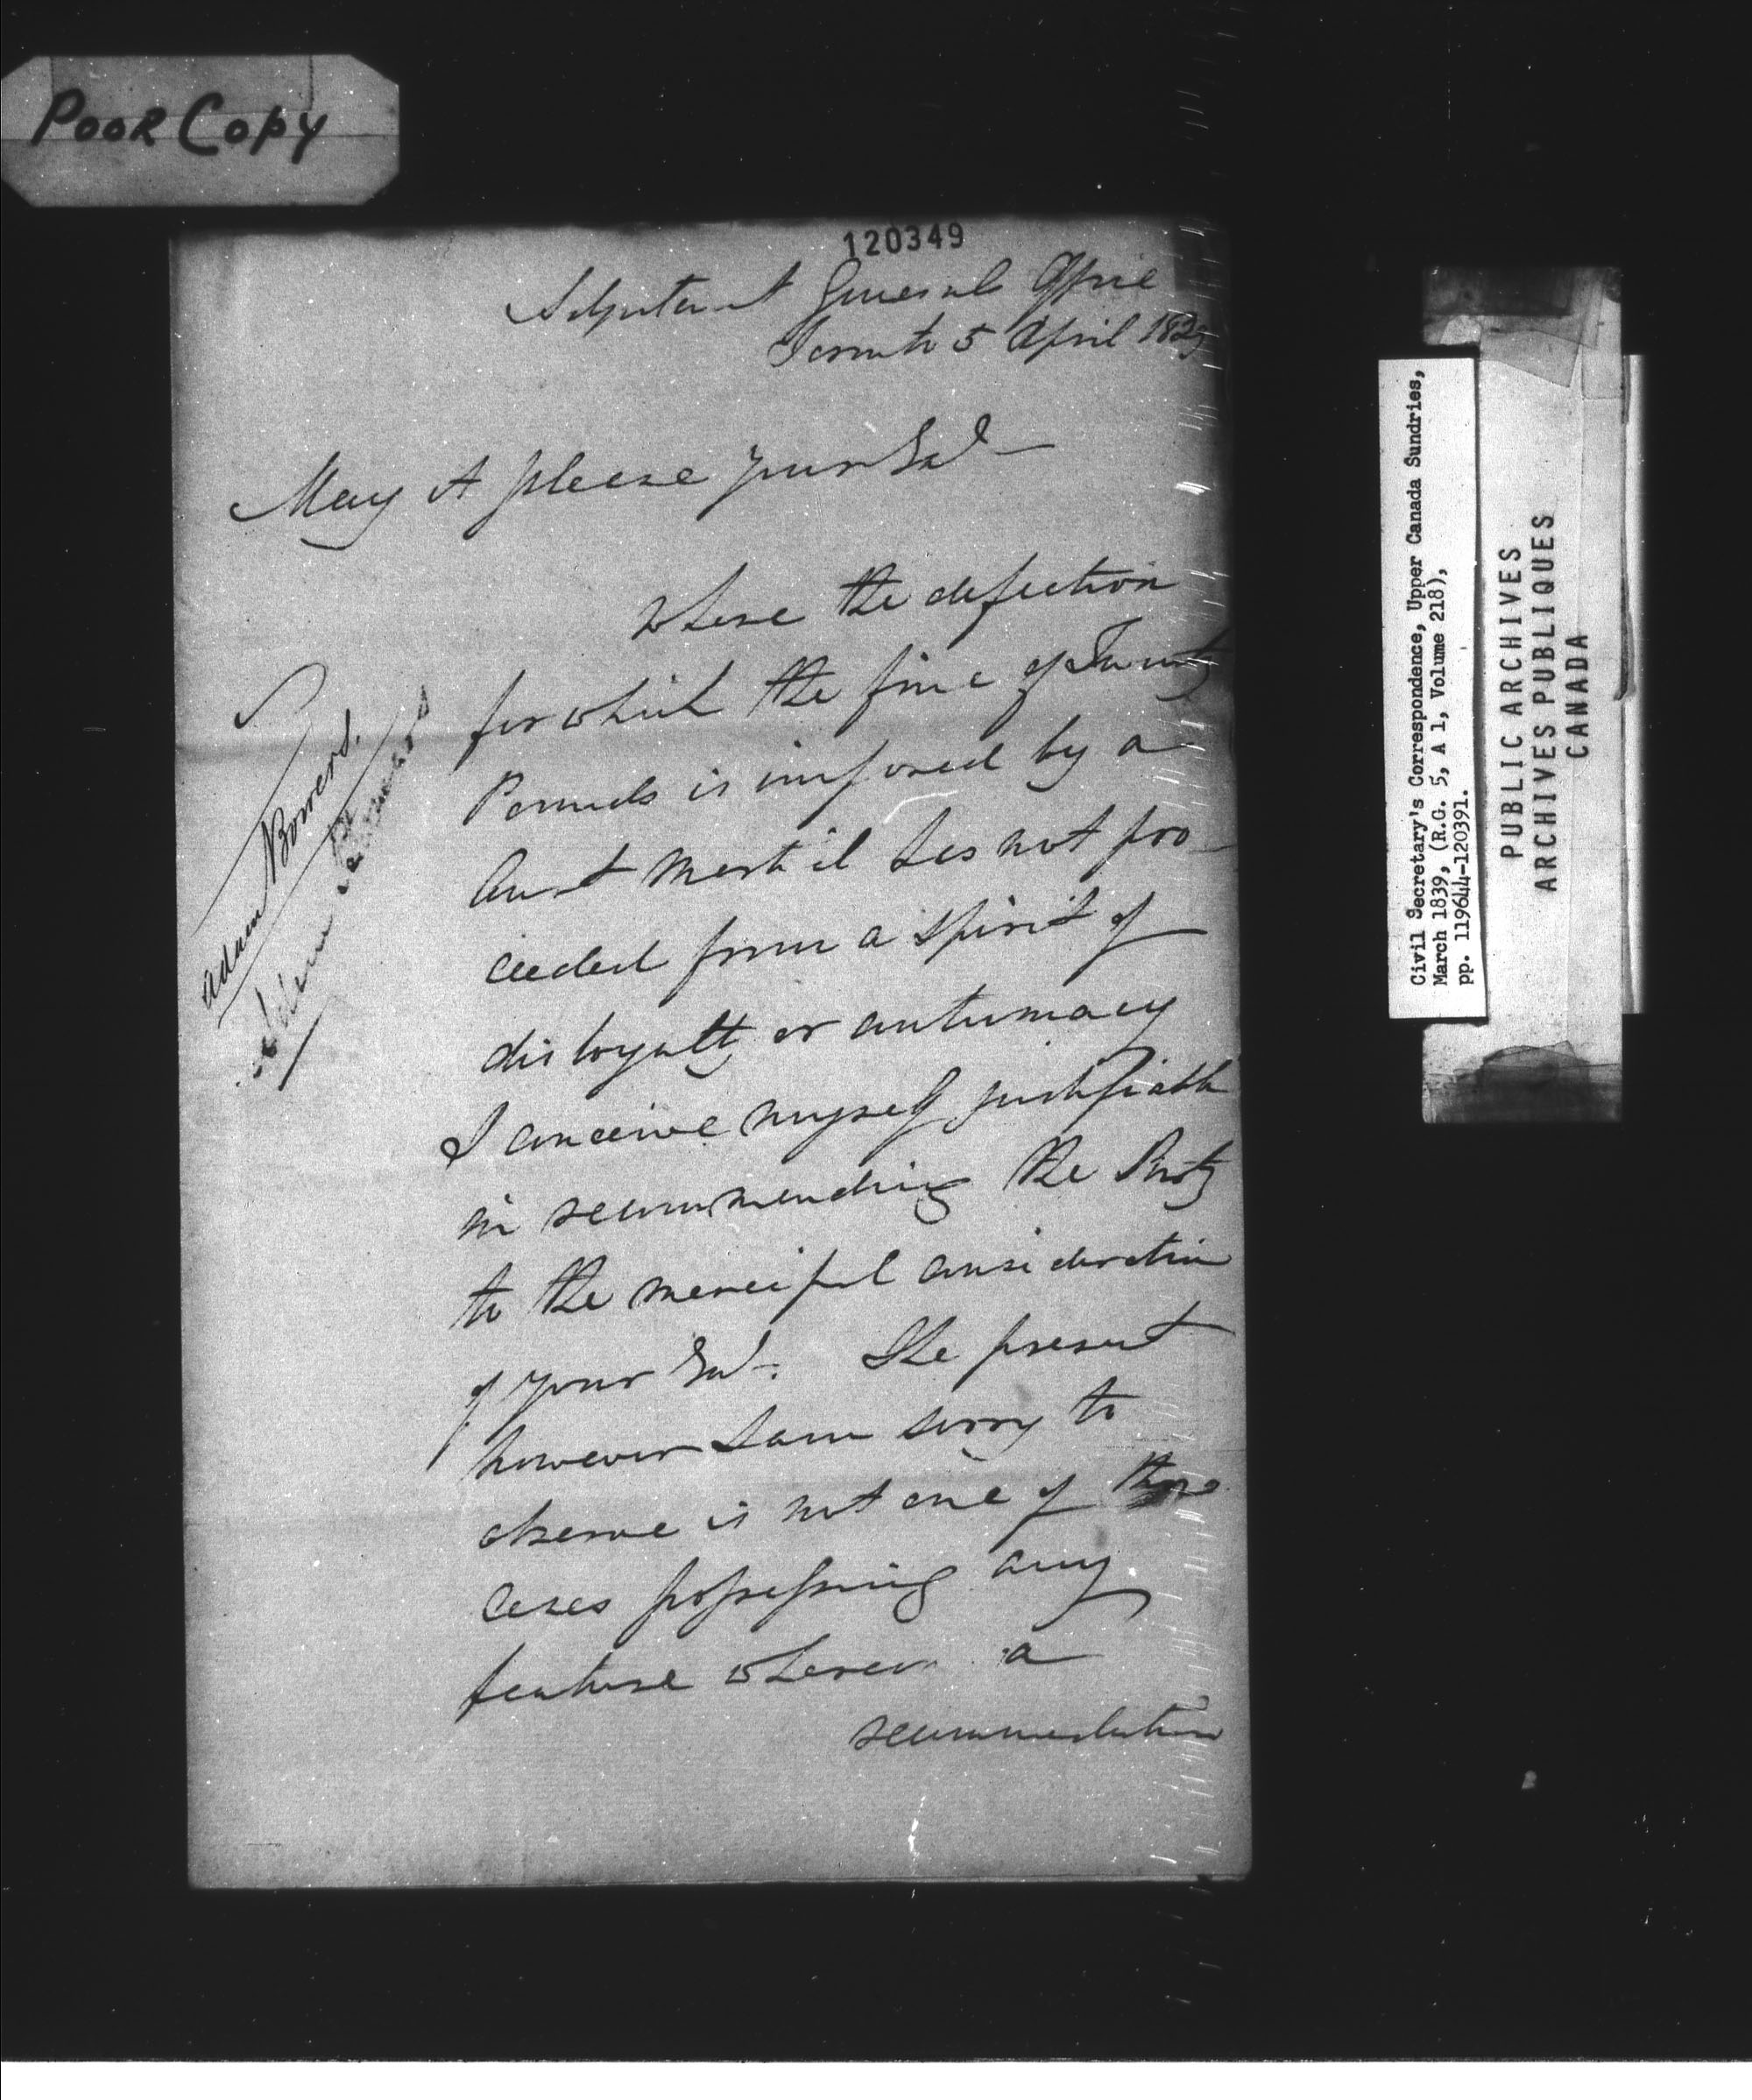 POOR COPY
120349
Adjutant General Office
Toronto 5 April 1839
May it please your Exl
Where the defection
for which the fine of Twenty
Pounds is imposed by a
Court Martial has not pro
ceeded from a spirit of
disloyalty or contumacy
I conceive myself justifiable
in recommending the Party
to the merciful consideration
of your Exl. The present
however I am sorry to
observe is not one of those
cases possessing any
feature whereon a
recommendation
Adam Bowers.
Civil Secretary's Correspondence, Upper Canada Sundries,
March 1839, (R.G. 5, A 1, Volume 218),
pp. 119644-120391.
PUBLIC ARCHIVES
ARCHIVES PUBLIQUES
CANADA